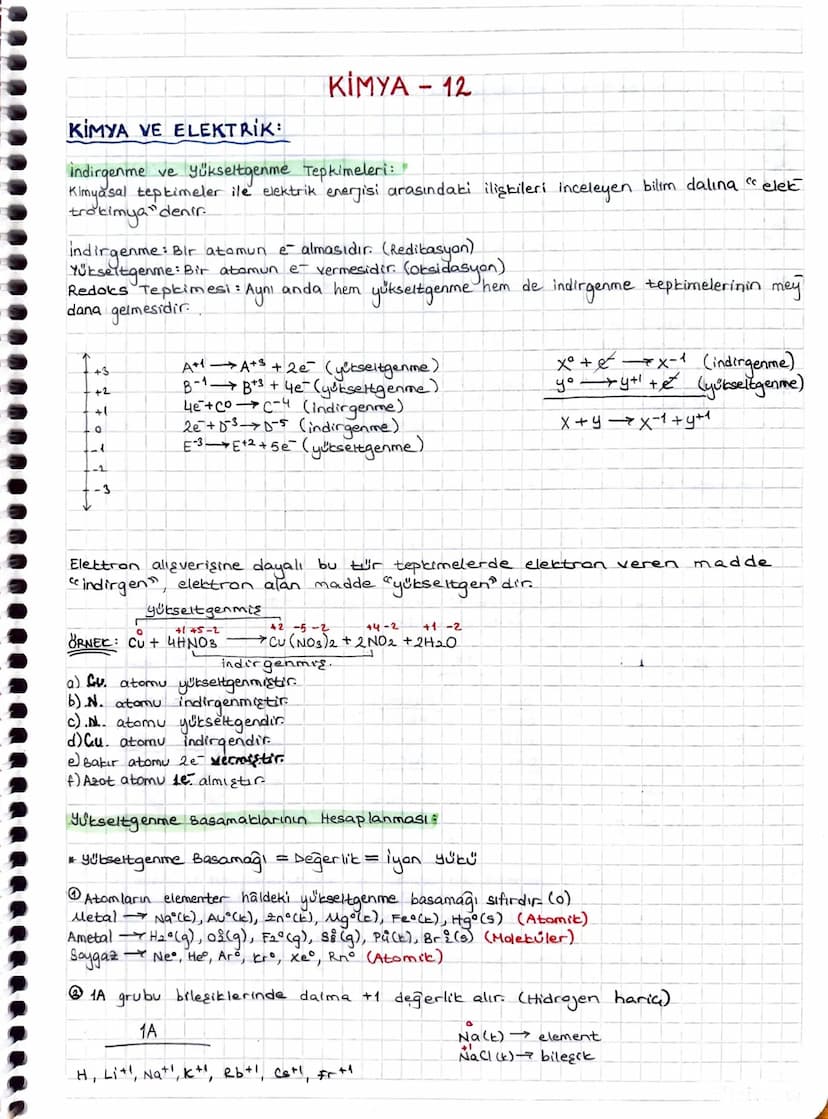 KİMYA - 12
KİMYA VE ELEKTRİK:
İndirgenme ve Yükseltgenme Tepkimeleri:
Kimyasal tepkimeler ile elektrik enerjisi arasındaki ilişkileri inceleyen bilim dalına "elek
trokimya" denir.
İndirgenme: Bir atomun e⁻ almasıdır. (Redüksiyon)
Yükseltgenme: Bir atomun e⁻ vermesidir. (Oksidasyon)
Redoks Tepkimesi: Aynı anda hem yükseltgenme hem de indirgenme tepkimelerinin mey
dana gelmesidir.
+3
+2
+1
0
-1
-2
-3
A⁺¹ → A⁺³ + 2e⁻ (yükseltgenme)
B⁻¹ → B⁺³ + 4e⁻ (yükseltgenme)
4e⁻ + C⁰ → C⁻⁴ (indirgenme)
2e⁻ + D⁻³ → D⁻⁵ (indirgenme)
E⁻³ → E⁺² + 5e⁻ (yükseltgenme)
x⁰ + e⁻ → x⁻¹ (indirgenme)
y⁰ → y⁺¹ + e⁻ (yükseltgenme)
x + y → x⁻¹ + y⁺¹
Elektron alışverişine dayalı bu tür tepkimelerde elektron veren madde
"indirgen", elektron alan madde "yükseltgen" dir.
yükseltgenmiş
0 +1 +5 -2 +2 -5 -2 +4 -2 +1 -2
ÖRNEK: Cu + 4HNO₃ → Cu(NO₃)₂ + 2NO₂ + 2H₂O
indirgenmiş.
a) Cu. atomu yükseltgenmiştir.
b) .N. atomu indirgenmiştir.
c) .N. atomu yükseltgendir.
d) Cu. atomu indirgendir.
e) Bakır atomu 2e⁻ vermiştir.
f) Azot atomu 1e⁻ almıştır.
Yükseltgenme Basamaklarının Hesaplanması:
* Yükseltgenme Basamağı = Değerlik = İyon yükü
① Atomların elementer hâldeki yükseltgenme basamağı sıfırdır. (0)
Metal → Na⁰(k), Au⁰(k), Zn⁰(k), Mg⁰(k), Fe⁰(k), Hg⁰(s) (Atomik)
Ametal → H₂⁰(g), O₂⁰(g), F₂⁰(g), S₈⁰(g), P₄⁰(k), Br₂⁰(s) (Moleküler)
Soygaz → Ne⁰, He⁰, Ar⁰, Kr⁰, Xe⁰, Rn⁰ (Atomik)
② 1A grubu bileşiklerinde daima +1 değerlik alır. (Hidrojen hariç)
1A
H, Li⁺¹, Na⁺¹, K⁺¹, Rb⁺¹, Cs⁺¹, Fr⁺¹
0
Na(k) → element
+1
NaCl(k) → bileşik